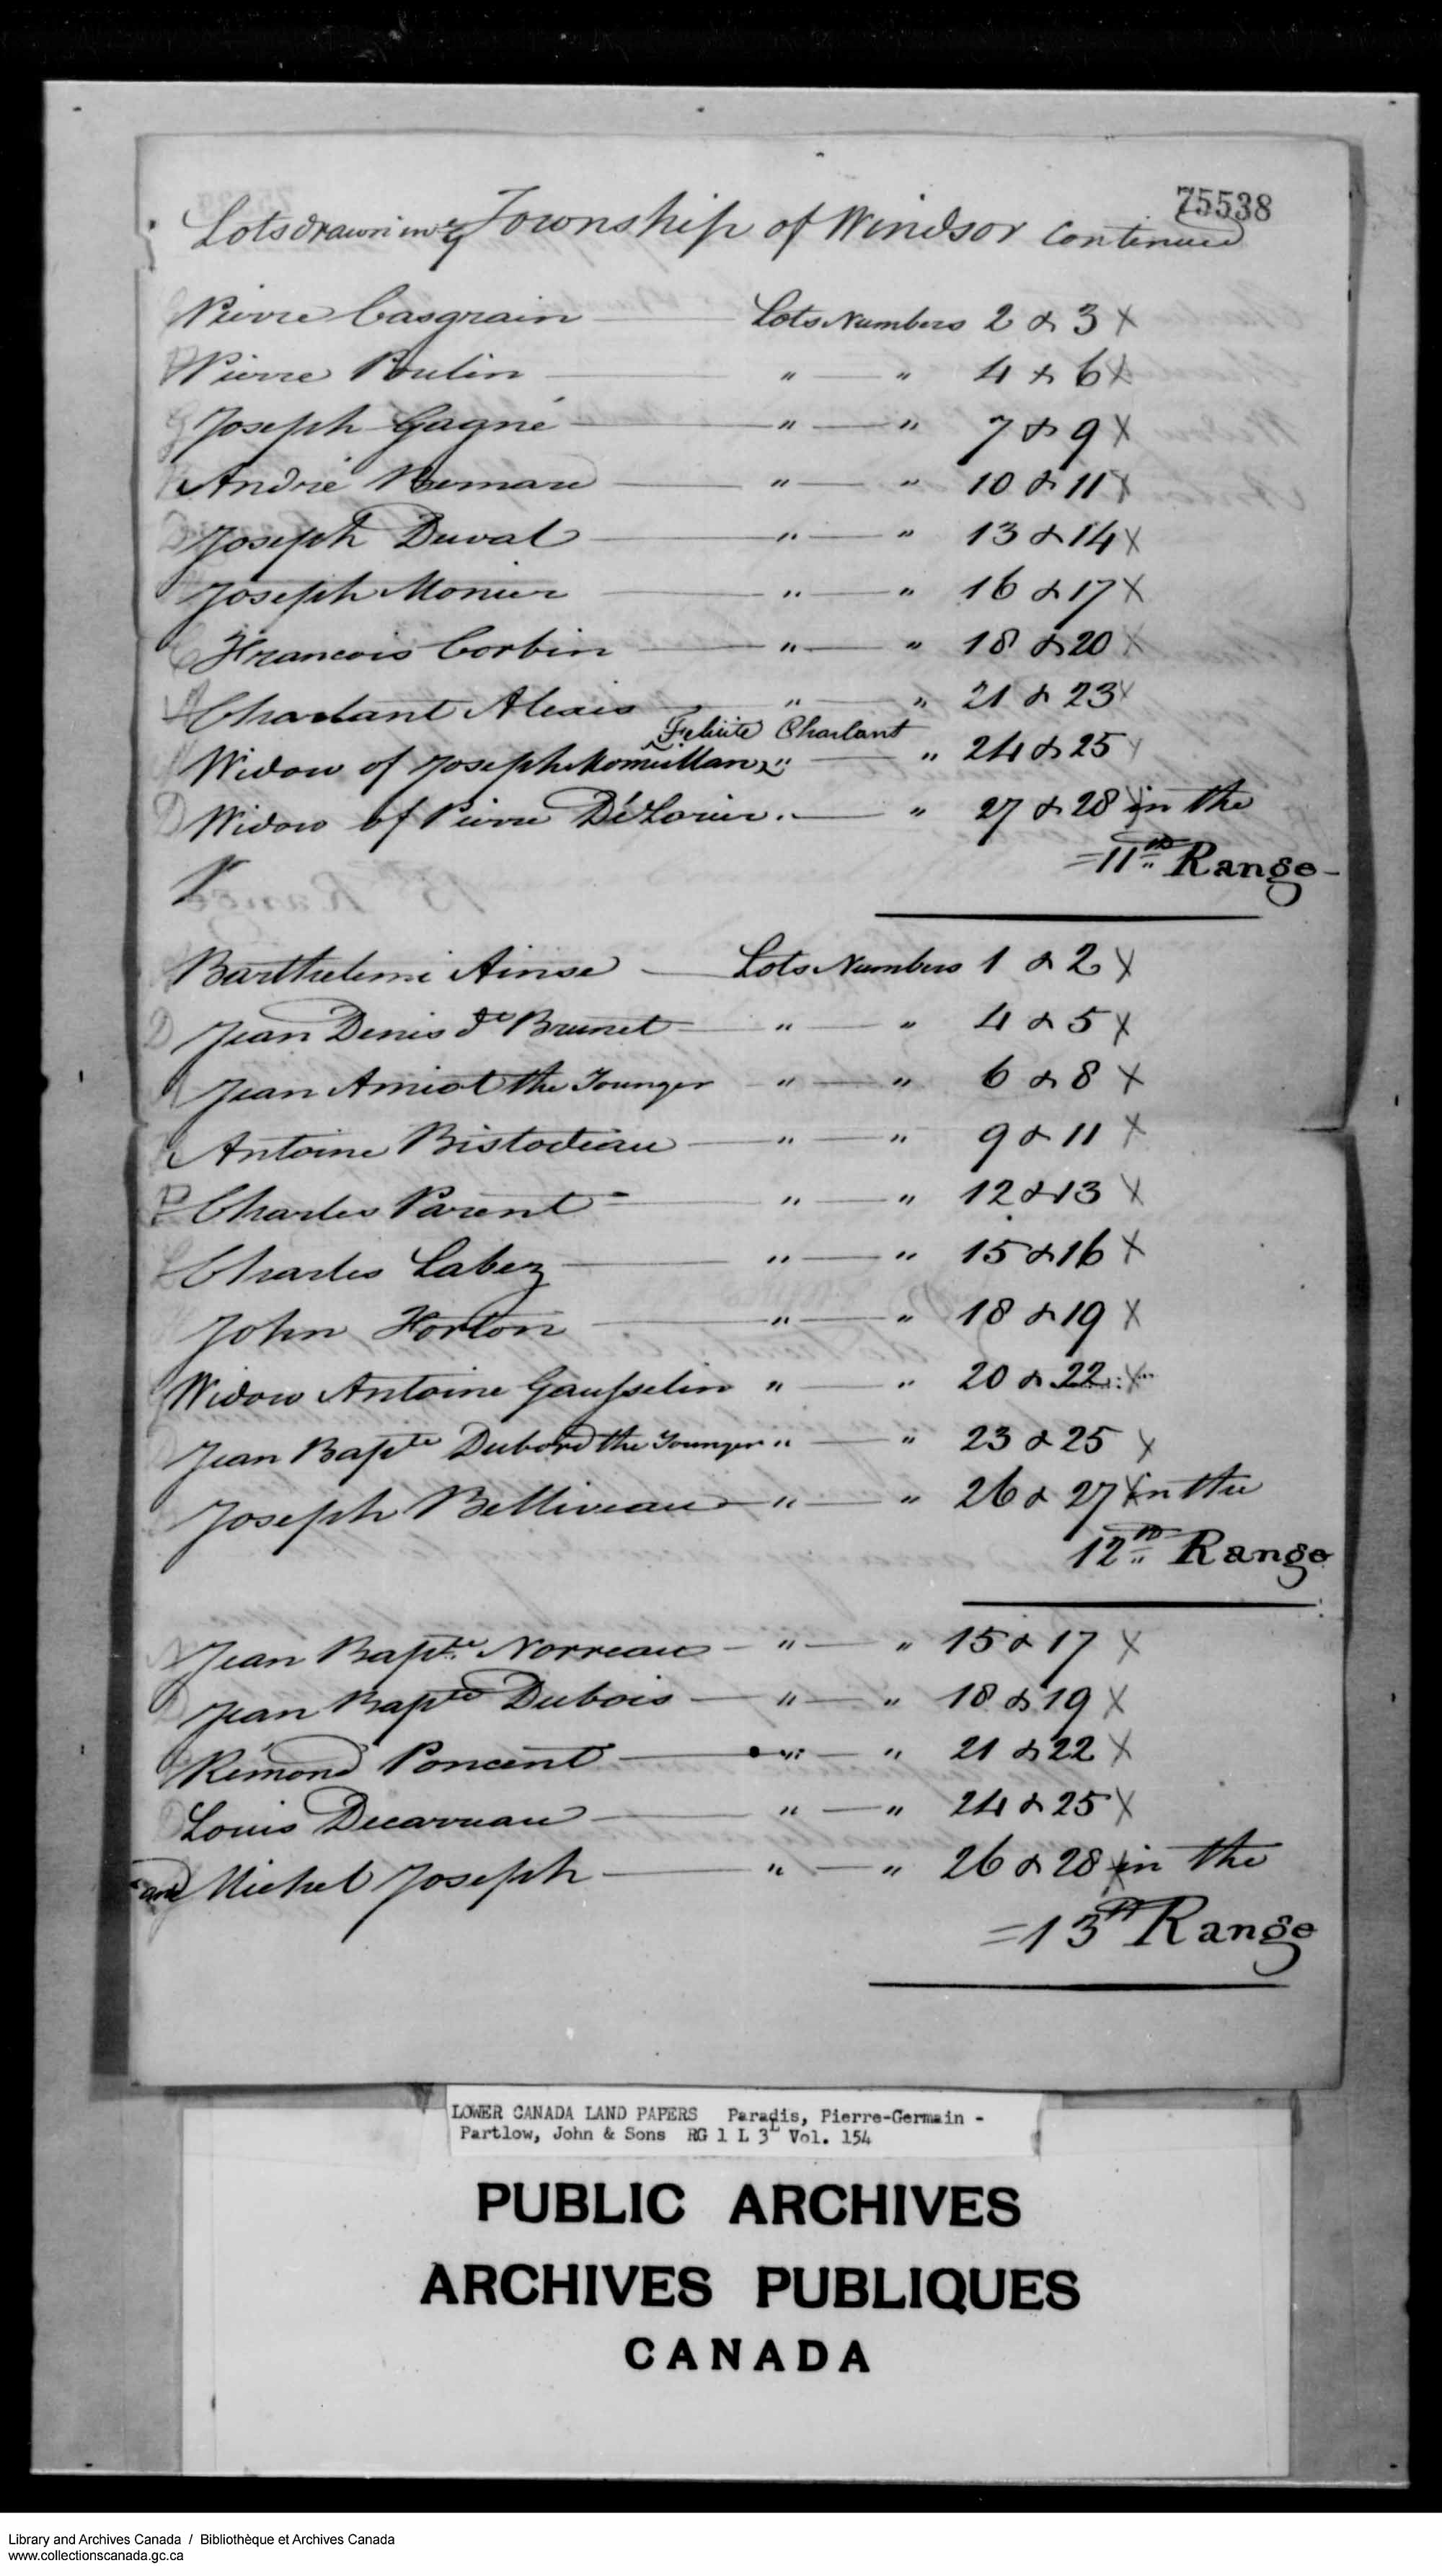 75538
Lots drawn in y Township of Windsor Continued
Pierre Casgrain — Lots Numbers 2 & 3 X
Pierre Poulin — " — " 4 & 6 X
Joseph Gagné — " — " 7 & 9 X
André — " — " 10 & 11 X
Joseph Duval — " — " 13 & 14 X
Joseph Monier — " — " 16 & 17 X
Francois Corbin — " — " 18 & 20 X
Charlant Alexis — " — " 21 & 23 X
Felicité Charlant
Widow of Joseph " — " 24 & 25 X
D Widow of Pierre DéLorier. — " 27 & 28 X in the
=11th Range-
Barthelemi Ainse — Lots Numbers 1 & 2 X
D Jean Denis dt Brunet — " — " 4 & 5 X
Jean Amiot the Younger " — " 6 & 8 X
Antoine Bistodeau — " — " 9 & 11 X
P Charles Parent — " — " 12 & 13 X
Charles Labez — " — " 15 & 16 X
John Horton — " — " 18 & 19 X
Widow Antoine Gausselin " — " 20 & 22 X
Jean Bapte Dubord the Younger " — " 23 & 25 X
Joseph Belliveau — " — " 26 & 27 X in the
12th Range
Jean Bapte Norreau — " — " 15 & 17 X
Jean Bapte Dubois — " — " 18 & 19 X
Rémond Poncent — " — " 21 & 22 X
Louis Decarreau — " — " 24 & 25 X
and Michel Joseph — " — " 26 & 28 X in the
=13th Range
LOWER CANADA LAND PAPERS Paradis, Pierre-Germain -
Partlow, John & Sons RG 1 L 3L Vol. 154
PUBLIC ARCHIVES
ARCHIVES PUBLIQUES
CANADA
Library and Archives Canada / Bibliothèque et Archives Canada
www.collectionscanada.gc.ca